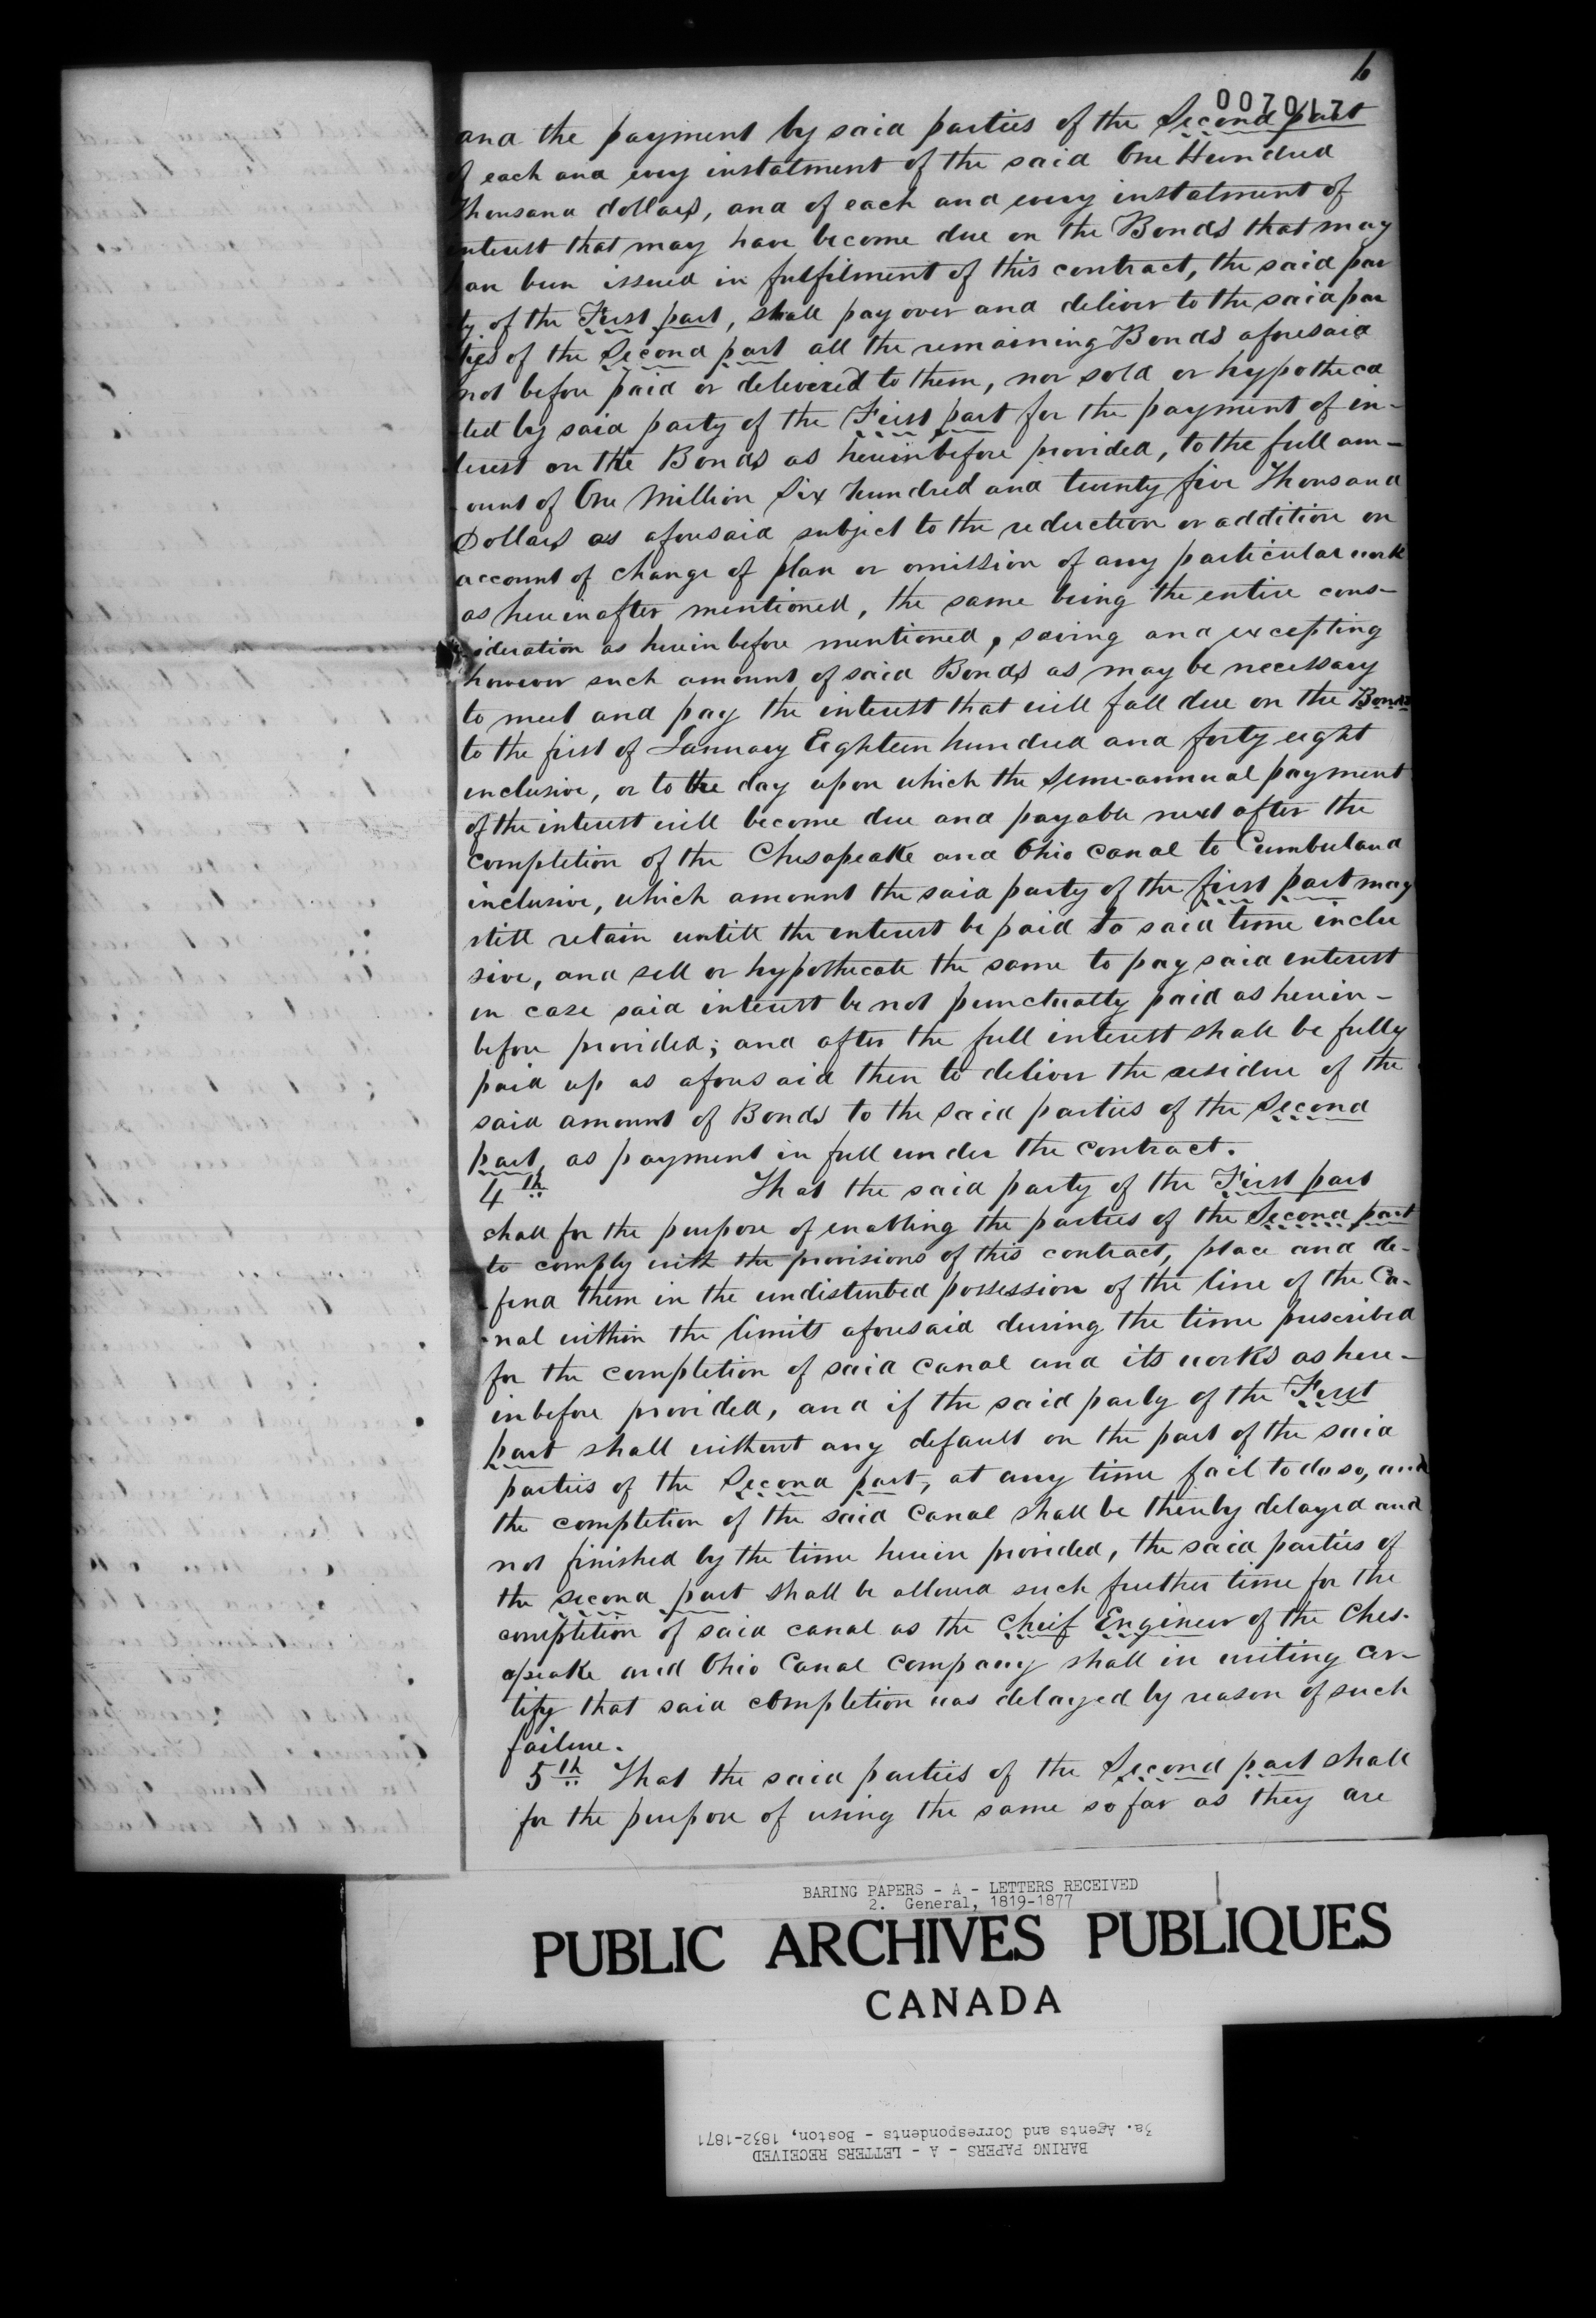 6
007017
and the payment by said parties of the Second part
of each and every instalment of the said One Hundred
Thousand dollars, and of each and every instalment of
interest that may have become due on the Bonds that may
have been issued in fulfilment of this contract, the said par
ty of the First part, shall pay over and deliver to the said par
-ties of the Second part all the remaining Bonds aforesaid
not before paid or delivered to them, nor sold or hypotheca
-ted by said party of the First part for the payment of in-
terest on the Bonds as hereinbefore provided, to the full am-
-ount of One Million Six hundred and twenty five Thousand
Dollars as aforesaid subject to the reduction or addition on
account of change of plan or omission of any particular work
as hereinafter mentioned, the same being the entire cons-
-ideration as herein before mentioned, saving and excepting
however such amount of said Bonds as may be necessary
to meet and pay the interest that will fall due on the Bonds
to the first of January Eighteen hundred and forty eight
inclusive, or to the day upon which the Semi-annual payment
of the interest will become due and payable next after the
completion of the Chesapeake and Ohio Canal to Cumberland
inclusive, which amount the said party of the first part may
still retain untill the interest be paid to said time inclu
sive, and sell or hypothecate the same to pay said interest
in case said interest be not punctually paid as herein-
before provided; and after the full interest shall be fully
paid up as aforesaid then to deliver the residue of the
said amount of Bonds to the said parties of the Second
part, as payment in full under the contract.
4th That the said party of the First part
shall for the purpose of enabling the parties of the Second part
to comply with the provisions of this contract, place and de-
-fend them in the undisturbed possession of the line of the Ca-
-nal within the limits aforesaid during the time prescribed
for the completion of said canal and its works as here-
inbefore provided, and if the said party of the First
part shall without any default on the part of the said
parties of the Second part, at any time fail to do so, and
the completion of the said Canal shall be thereby delayed and
not finished by the time herein provided, the said parties of
the second part shall be allowed such further time for the
completion of said canal as the Cheif Engineer of the Ches-
apeake and Ohio Canal Company shall in writing cer-
tify that said completion was delayed by reason of such
failure.
5th That the said parties of the Second part shall
for the purpose of using the same so far as they are
BARING PAPERS - A - LETTERS RECEIVED
2. General, 1819-1877
PUBLIC ARCHIVES PUBLIQUES
CANADA
BARING PAPERS - A - LETTERS RECEIVED
3a. Agents and Correspondents - Boston, 1832-1871